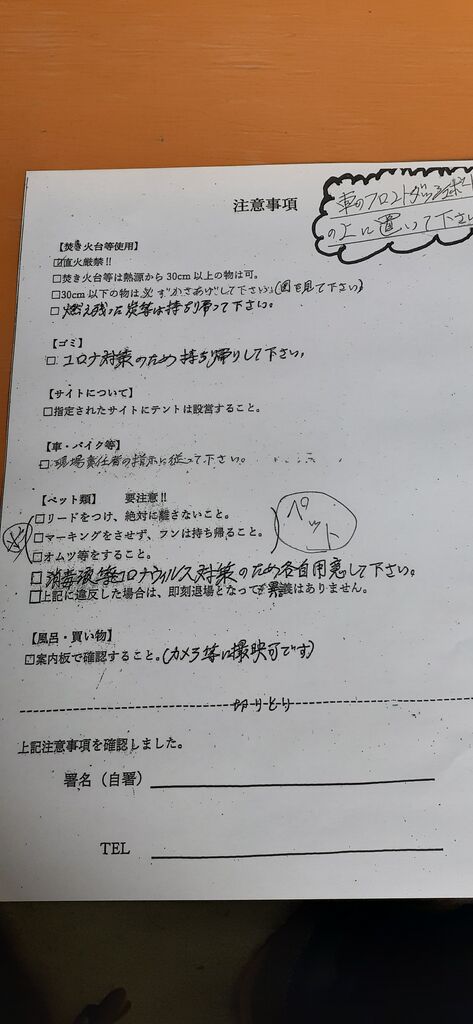 注意事項
車のフロントダッシュボード
の上に置いて下さい
【焚き火台等使用】
☑直火厳禁!!
□焚き火台等は熱源から30cm以上の物は可。
□30cm以下の物は必ずかさあげして下さい。(図を見て下さい)
□燃え残った炭等は持ち帰って下さい。
【ゴミ】
□コロナ対策のため持ち帰りして下さい。
【サイトについて】
□指定されたサイトにテントは設営すること。
【車・バイク等】
□現場責任者の指示に従って下さい。
【ペット類】 要注意!!
□リードをつけ、絶対に離さないこと。
□マーキングをさせず、フンは持ち帰ること。
□オムツ等をすること。
ペット
□消毒液等コロナウィルス対策のため各自用意して下さい。
□上記に違反した場合は、即刻退場となって異議はありません。
【風呂・買い物】
☑案内板で確認すること。(カメラ等に撮映可です)
切りとり
上記注意事項を確認しました。
署名(自署)
TEL